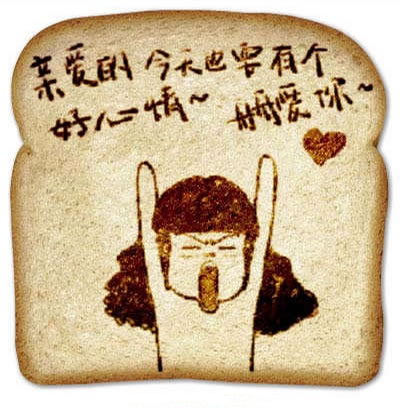 亲爱的 今天也要有个
好心情~ 爱你~